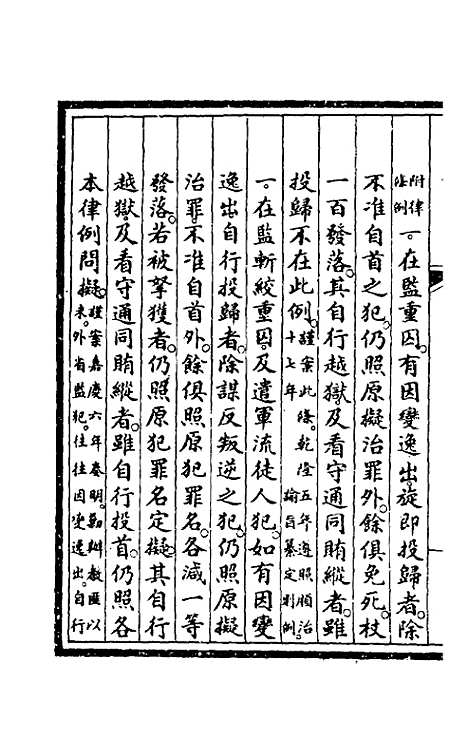 附律條例一。在監重囚。有因變逸出。旋即投歸者。除
不准自首之犯。仍照原擬治罪外。餘俱免死。杖
一百發落。其自行越獄。及看守通同賄縱者。雖
投歸不在此例。謹案此條。乾隆五年遵照順治十七年 諭旨纂定則例。
一。在監斬絞重囚。及遣軍流徒人犯。如有因變
逸出自行投歸者。除謀反叛逆之犯。仍照原擬
治罪。不准自首外。餘俱照原犯罪名。各減一等
發落。若被拏獲者。仍照原犯罪名定擬。其自行
越獄。及看守通同賄縱者。雖自行投首。仍照各
本律例問擬。謹案嘉慶六年奏明。勦辦教匪以來。外省監犯。往往因變逸出。自行